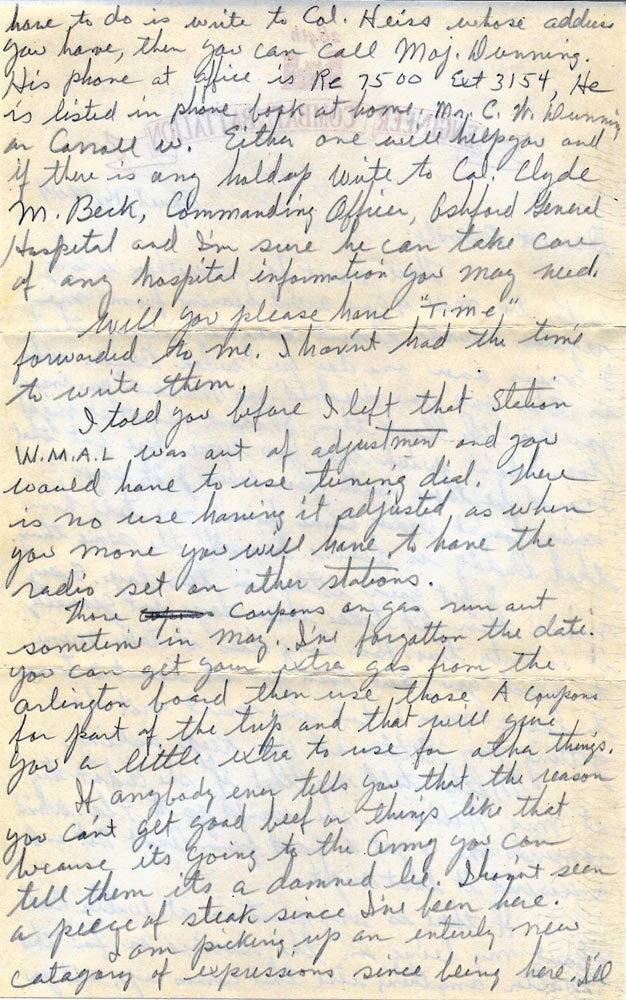 have to do is write to Col. Heiss whose address
you have, then you can call Maj. Dunning.
His phone at office is Re 7500 Ext 3154, He
is listed in phone book at home Mr. C. W. Dunning
or Carroll W. Either one will help you and
if there is any holdup write to Col. Clyde
M. Beck, Commanding Officer, Ashford General
Hospital and I'm sure he can take care
of any hospital information you may need.
Will you please have "Time"
forwarded to me. I havn't had the time
to write them
I told you before I left that Station
W.M.A.L was out of adjustment and you
would have to use tuning dial. There
is no use having it adjusted, as when
you move you will have to have the
radio set on other stations.
Those coupons on gas run out
sometime in May. I've forgotton the date.
You can get your extra gas from the
arlington board then use those A coupons
for part of the trip and that will give
you a little extra to use for other things.
If anybody ever tells you that the reason
you can't get good beef or things like that
because its going to the Army you can
tell them its a damned lie. I havn't seen
a piece of steak since I've been here.
I am picking up an entirely new
catagory of expressions since being here. I'll
ENGINEER COMBAT BATTALION